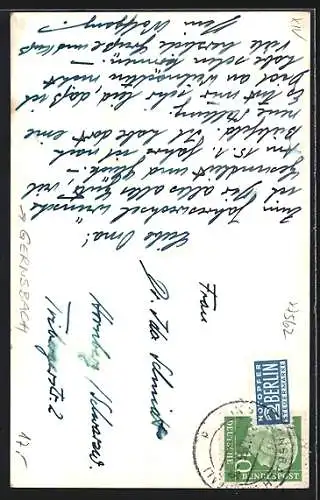 Liebe Oma!
Zum Jahreswechsel wünsche
ich Dir alles alles Gute, viel
Gesundheit und Glück. –
Am 15.1. fahre ich nach
Ich habe dort eine
neue Stellung.
Es tut mir sehr leid, daß ich
Dich an Weihnachten nicht
habe sehen können. –
Viele herzliche Grüße und Kuß
Dein Wolfgang. –
XIV
→ GERNSBACH
Frau
Dr. Ida Schmidt
Hornberg / Schwarzw.
Tribergerstr. 2
NOTOPFER
2 BERLIN
STEUERMARKE
10
DEUTSCHE
BUNDESPOST